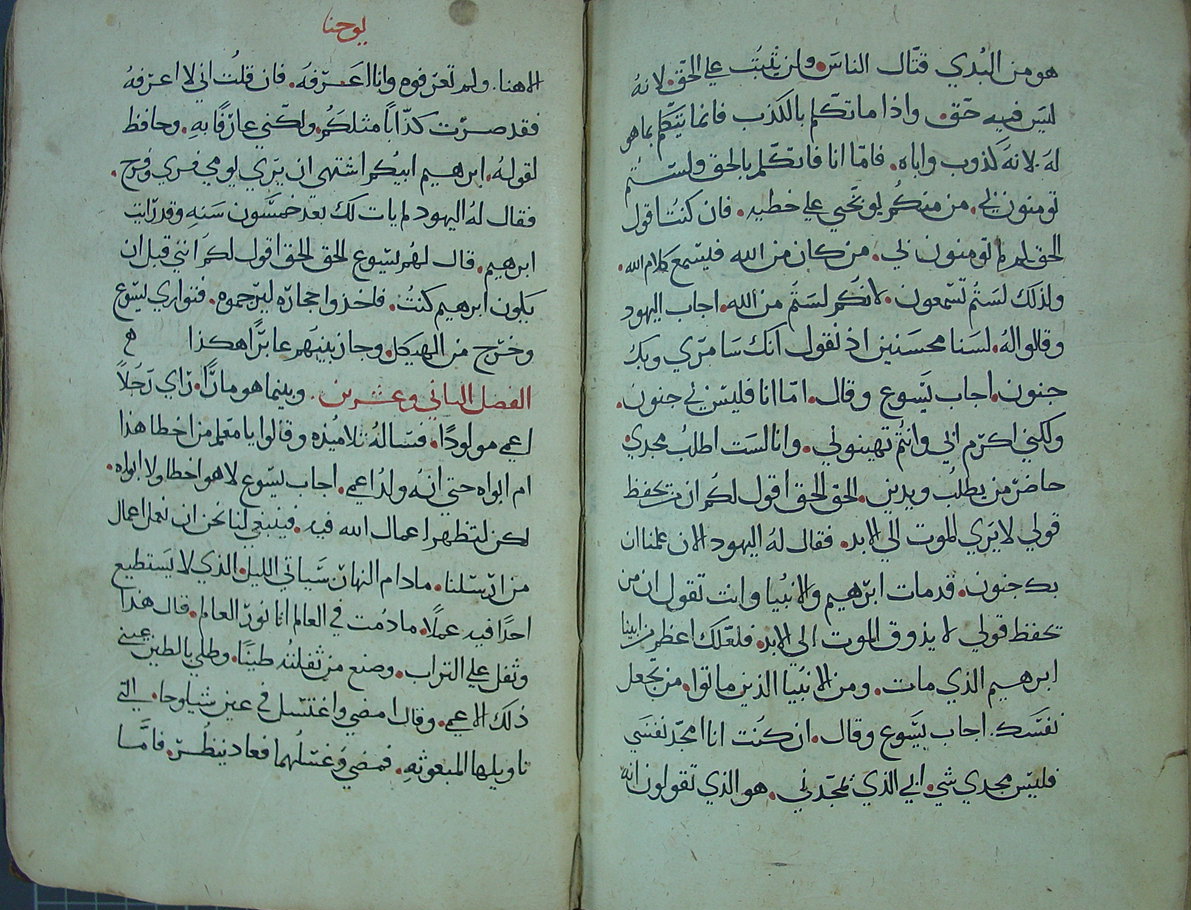 هو من البدي قتال الناس. ولن يثبت علي الحق. لانه
ليس فيه حق. واذا ما تكلم بالكذب فانما يتكلم بما هو
له. لانه كذوب واباه. فاما انا فاتكلم بالحق ولستم
تومنون بي. من منكم يوبخني علي خطيه. فان كنت اقول
الحق لم لم تومنون لي. من كان من الله فيسمع كلام الله.
ولذلك لستم تسمعون. لانكم لستم من الله. اجاب اليهود
وقالوا له. لسنا محسنين اذ نقول انك سامري وبك
جنون. اجاب يسوع وقال. اما انا فليس بي جنون.
ولكني اكرم ابي وانتم تهينوني. وانا لست اطلب مجدي
حاضر من يطلب ويدين. الحق الحق اقول لكم ان من يحفظ
قولي لا يري الموت الي الابد. فقال له اليهود الان علمنا ان
بك جنون. قد مات ابرهيم والانبيا وانت تقول ان من
يحفظ قولي لا يذوق الموت الي الابد. فلعلك اعظم من ابينا
ابرهيم الذي مات. ومن الانبيا الذين ماتوا. من تجعل
نفسك. اجاب يسوع وقال. ان كنت انا امجد نفسي
فليس مجدي شي. ابي الذي يمجدني. هو الذي تقولون انه
يوحنا
الاهنا. ولم تعرفوه وانا اعرفه. فان قلت اني لا اعرفه
فقد صرت كذابا مثلكم. ولكني عارفا به. وحافظ
لقوله. ابرهيم ابيكم اشتهي ان يري يومي فري وفرح.
فقال له اليهود لم يات لك بعد خمسون سنه وقد رايت
ابرهيم. قال لهم يسوع الحق الحق اقول لكم انني قبل ان
يكون ابرهيم كنت. فاخذوا حجاره ليرجموه. فتواري يسوع
وخرج من الهيكل. وجاز بينهم عابرا هكذا
الفصل الثاني وعشرين. وبينما هو مارا. راي رجلا
اعمي مولودا. فساله تلاميذه وقالوا يا معلم من اخطا هذا
ام ابواه حتي انه ولد اعمي. اجاب يسوع لا هو اخطا ولا ابواه.
لكن لتظهر اعمال الله فيه. فينبغي لنا نحن ان نعمل اعمال
من ارسلنا. مادام النهار سياتي الليل. الذي لا يستطيع
احدا فيه عملا. ما دمت في العالم انا نور العالم. قال هذا
وتفل علي التراب. وصنع من تفلته طينا. وطلي بالطين عيني
ذلك الاعمي. وقال امضي واغتسل في عين شيلوحا. التي
تاويلها المبعوثه. فمضي وغسلهما فعاد ينظر. فاما